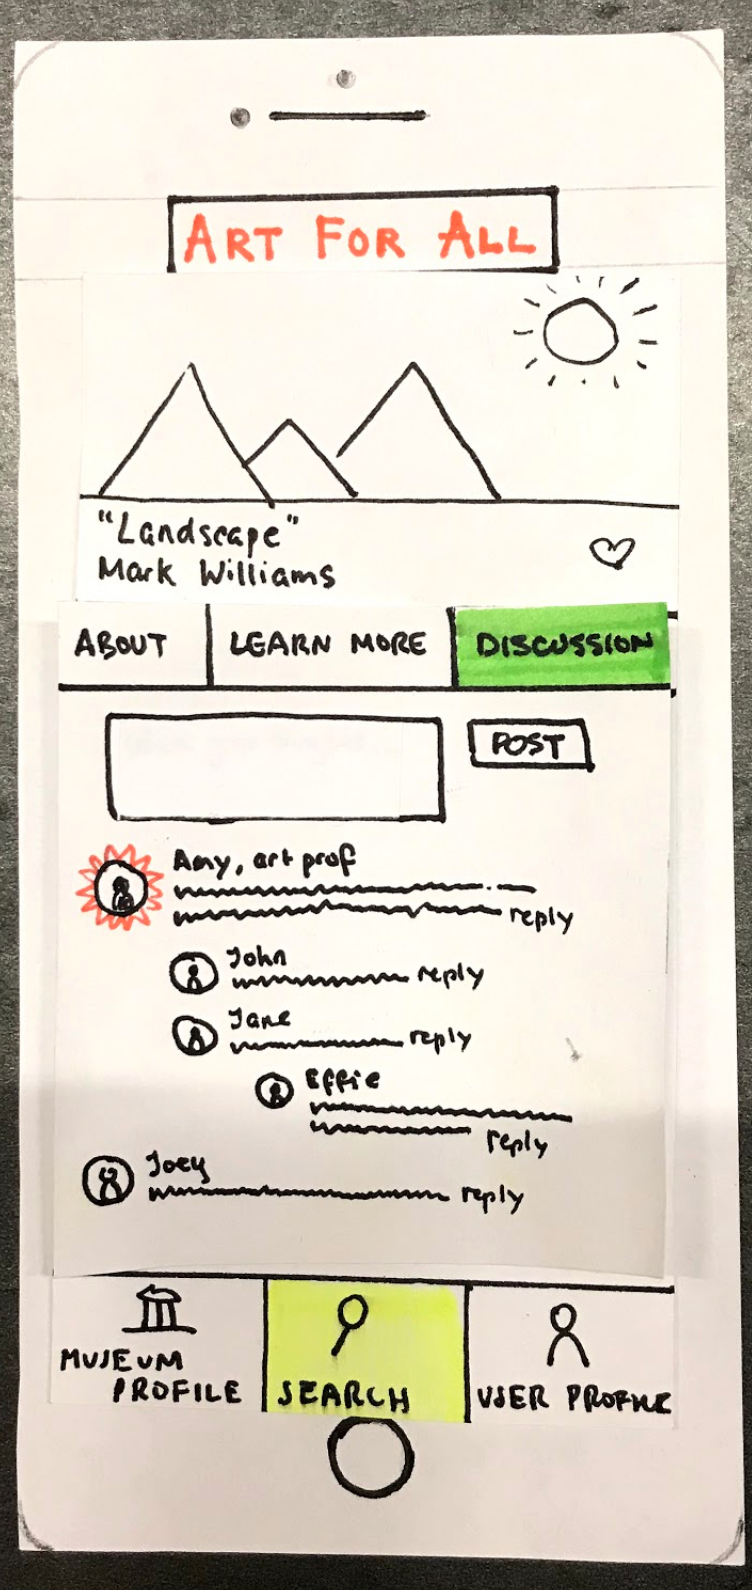 ART FOR ALL
"Landscape"
Mark Williams
ABOUT
LEARN MORE
DISCUSSION
POST
Amy, art prof
reply
John
reply
Jane
reply
Effie
reply
Joey
reply
MUSEUM
PROFILE
SEARCH
USER PROFILE